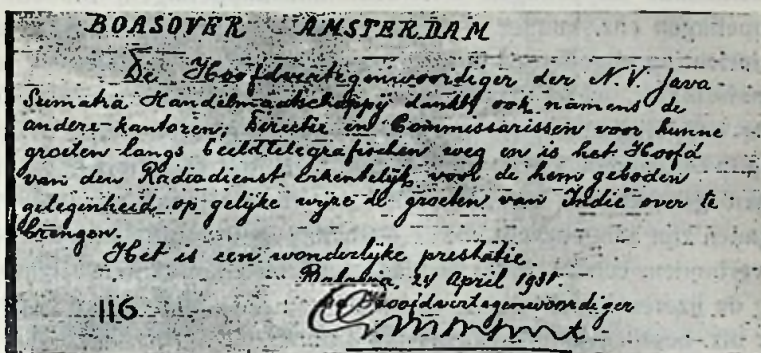 BOASOVER AMSTERDAM
De Hoofdvertegenwoordiger der N.V. Java
Sumatra Handelmaatschappij dankt, ook namens de
andere kantoren, Directie en Commissarissen voor hunne
groeten langs beeldtelegrafischen weg en is het Hoofd
van den Radiodienst erkentelijk voor de hem geboden
gelegenheid op gelijke wijze de groeten van Indië over te
brengen.
Het is een wonderlijke prestatie.
Batavia, 24 April 1931.
De Hoofdvertegenwoordiger
116